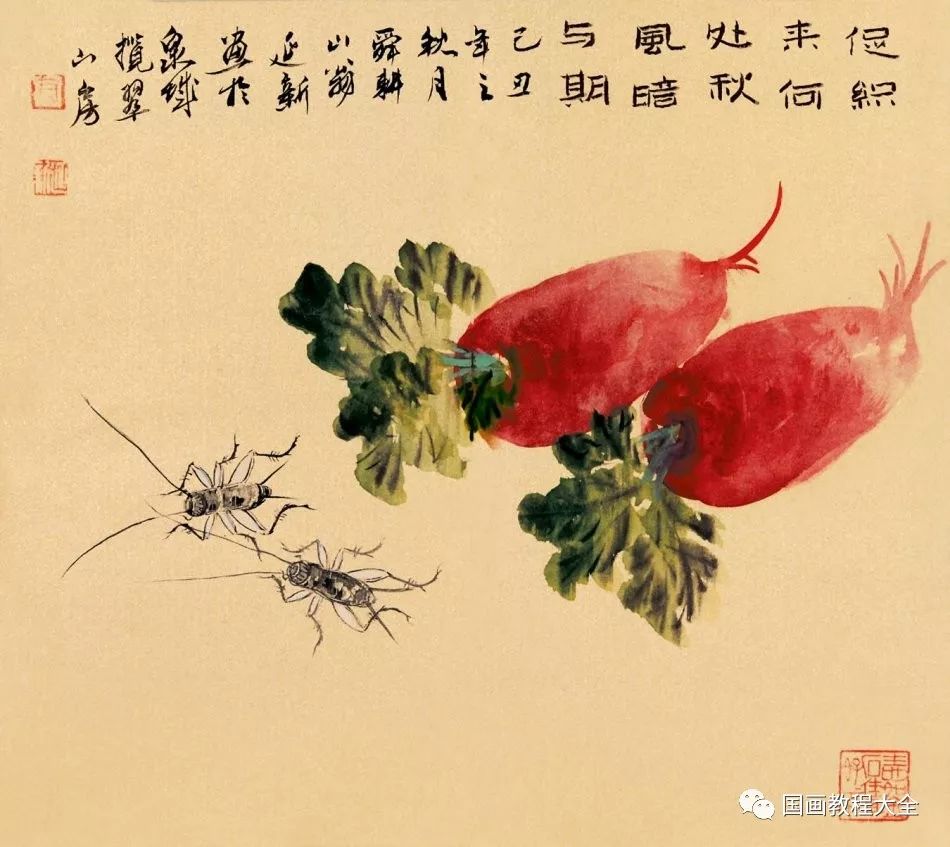 促织
来何
处秋
風暗
与期
己丑
年之
秋月
舜耕
山翁
延新
画於
泉城
揽翠
山房
国画教程大全